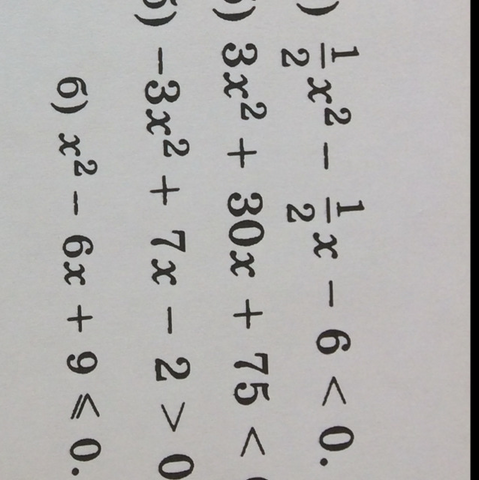 ) \frac{1}{2}x² − \frac{1}{2}x − 6 < 0.
) 3x² + 30x + 75 <
) −3x² + 7x − 2 > 0
б) x² − 6x + 9 ⩽ 0.